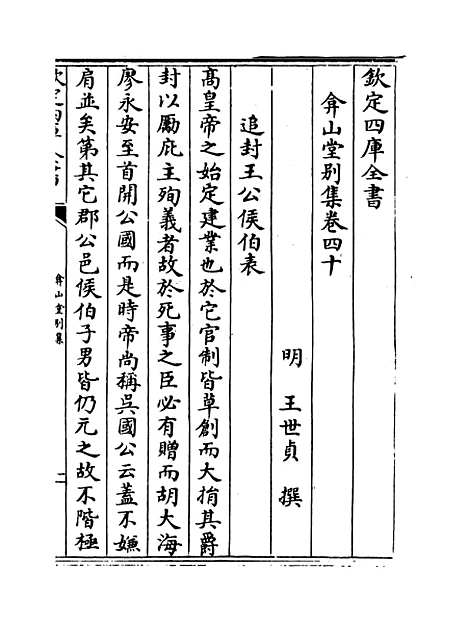 欽定四庫全書
弇山堂别集卷四十
明 王世貞 撰
追封王公侯伯表
髙皇帝之始定建業也於它官制皆草創而大捐其爵
封以勵庇主殉義者故於死事之臣必有贈而胡大海
廖永安至首開公國而是時帝尚稱吳國公云蓋不嫌
肩並矣第其它郡公邑侯伯子男皆仍元之故不階極
弇山堂别集
二